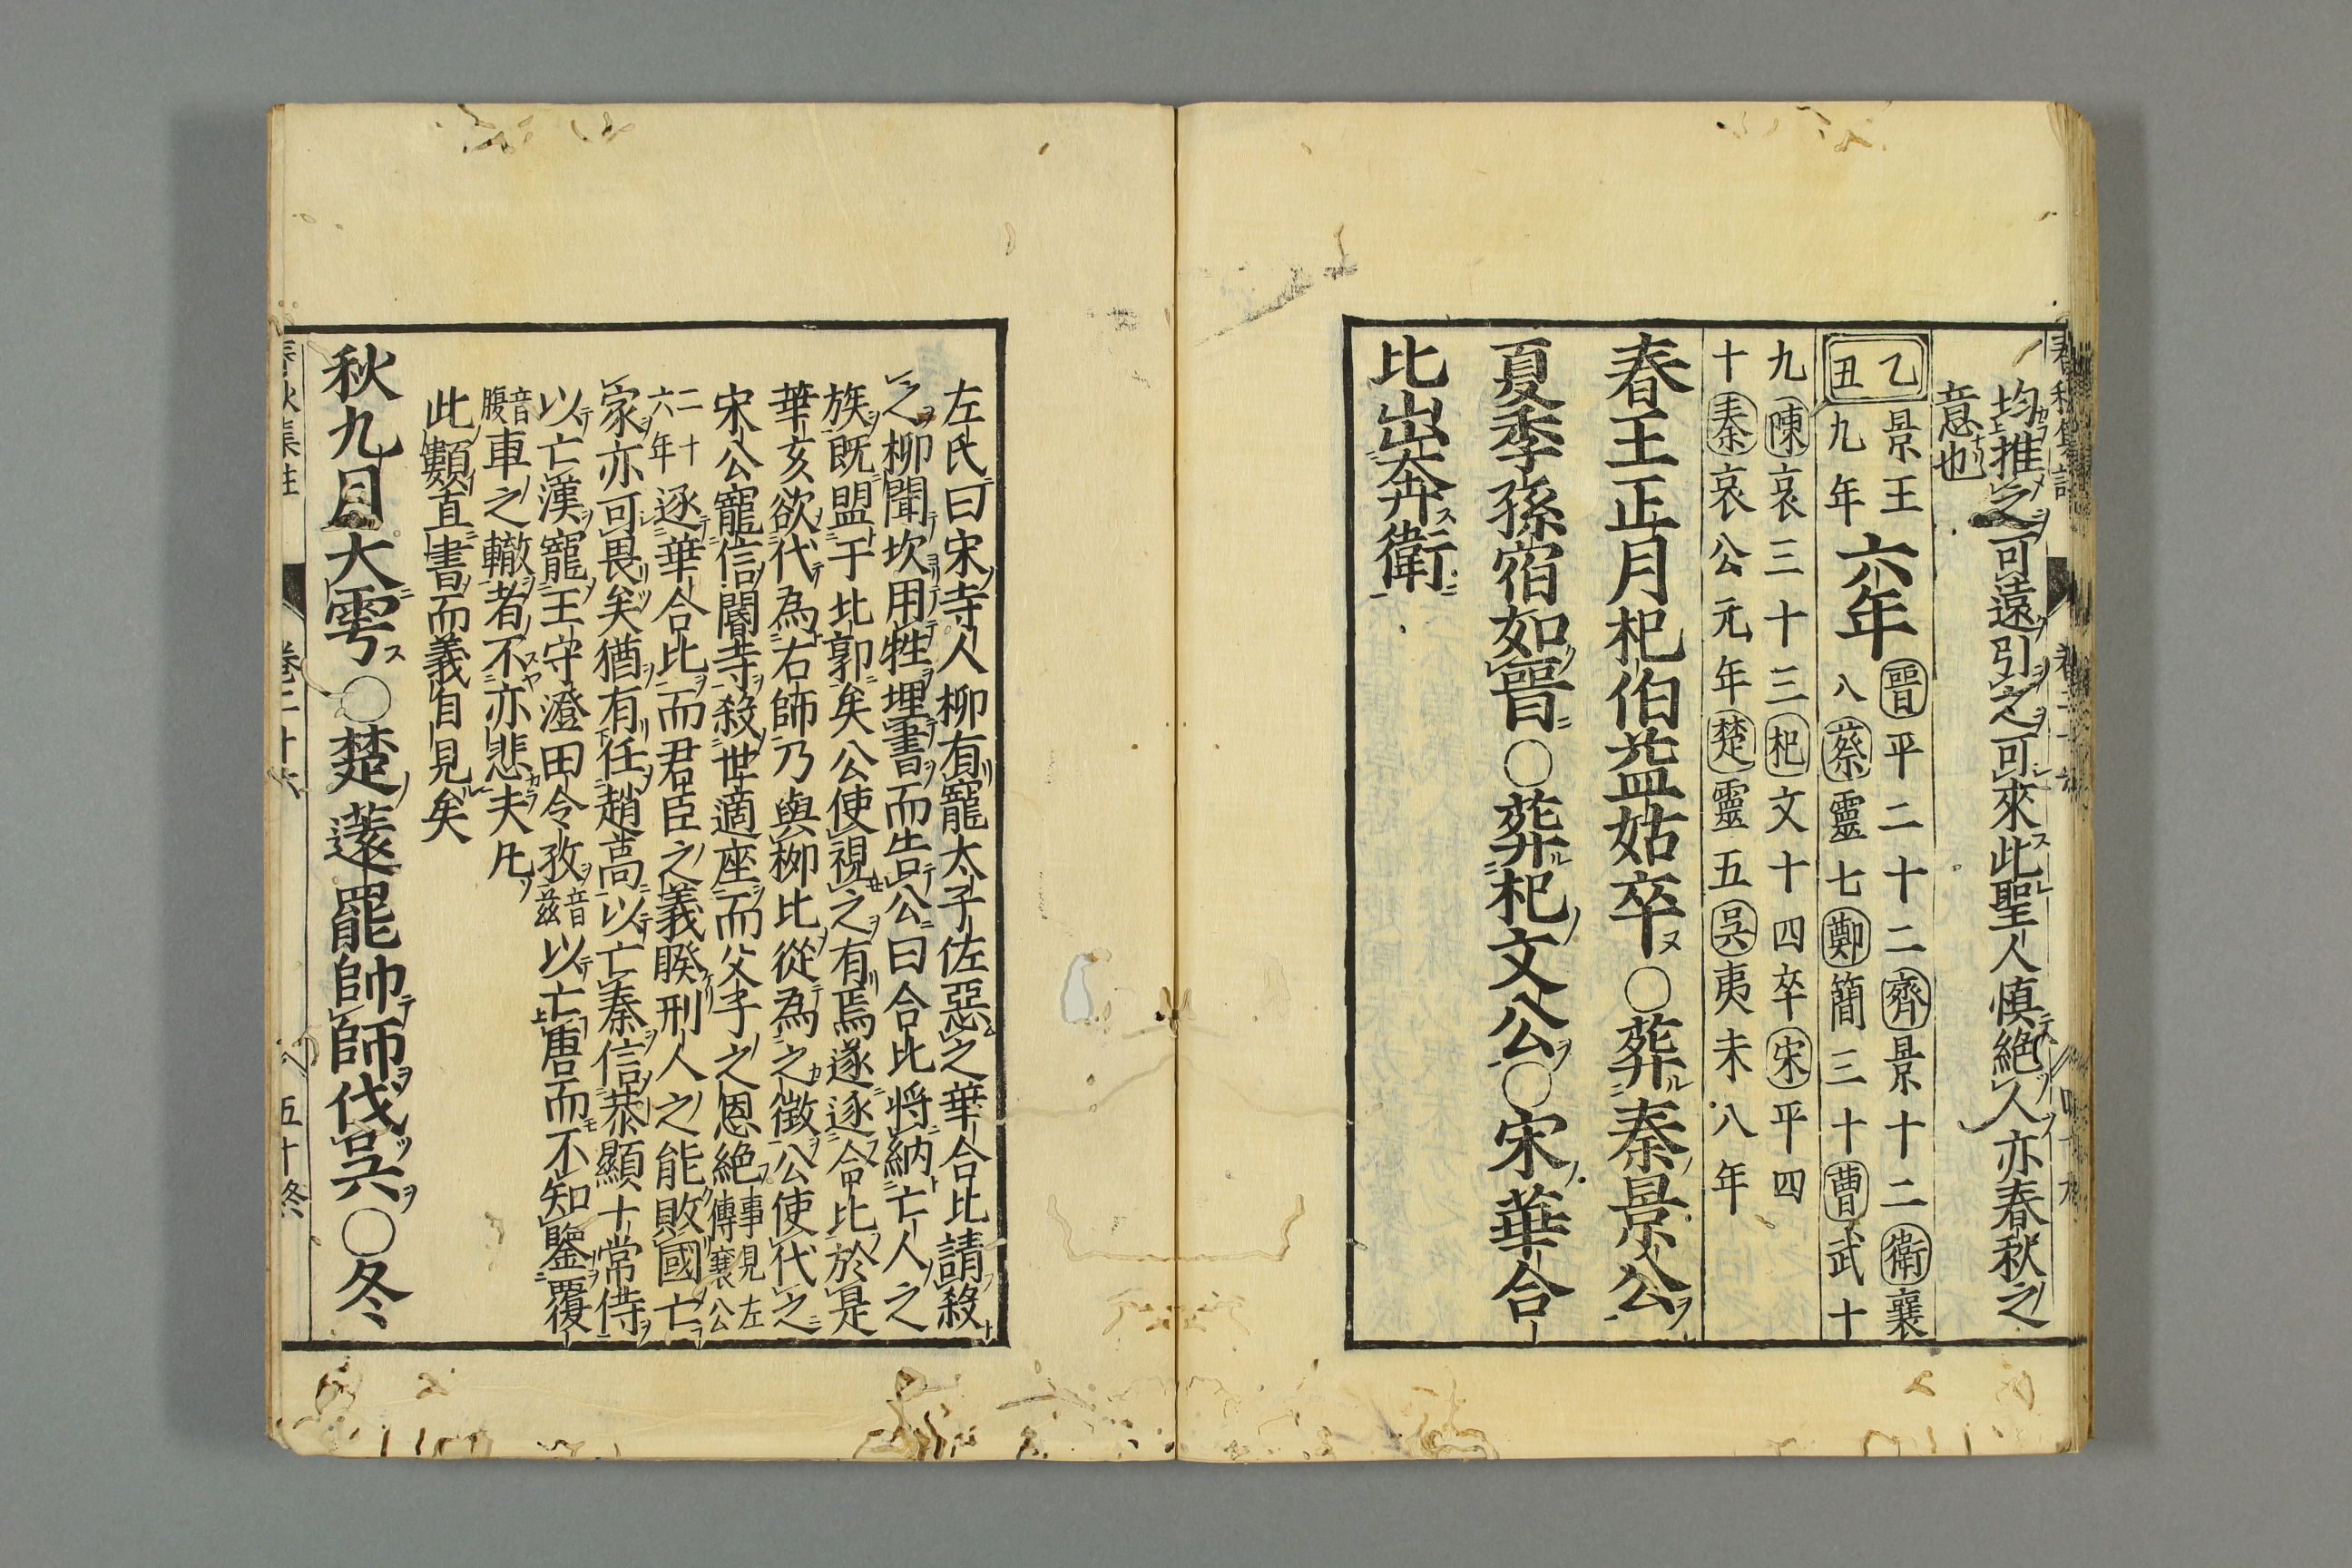 均推之可遠引之可來此聖人慎絶人亦春秋之
意也
乙丑
景王九年
六年
晉平二十二齊景十二衛襄
八蔡靈七鄭簡三十曹武十
九陳哀三十三杞文十四卒宋平四
十秦哀公元年楚靈五吳夷末八年
春王正月杞伯益姑卒○葬秦景公
夏季孫宿如晉○葬杞文公○宋華合
比出奔衛
左氏曰宋寺人柳有寵太子佐惡之華合比請殺
之柳聞坎用牲埋書而告公曰合比將納亡人之
族既盟于北郭矣公使視之有焉遂逐合比於是
華亥欲代為右師乃與柳比從為之徵公使代之
宋公寵信閽寺殺世適座而父子之恩絶事見左傳襄公
二十六年逐華合比而君臣之義睽刑人之能敗國亡
家亦可畏矣猶有任趙高以亡秦信恭顯十常侍
以亡漢寵王守澄田令孜音茲以亡唐而不知鑒覆
音腹車之轍者不亦悲夫凡
此類直書而義自見矣
秋九月大雩○楚薳罷帥師伐吳○冬
春秋集註
卷二十六
五十終